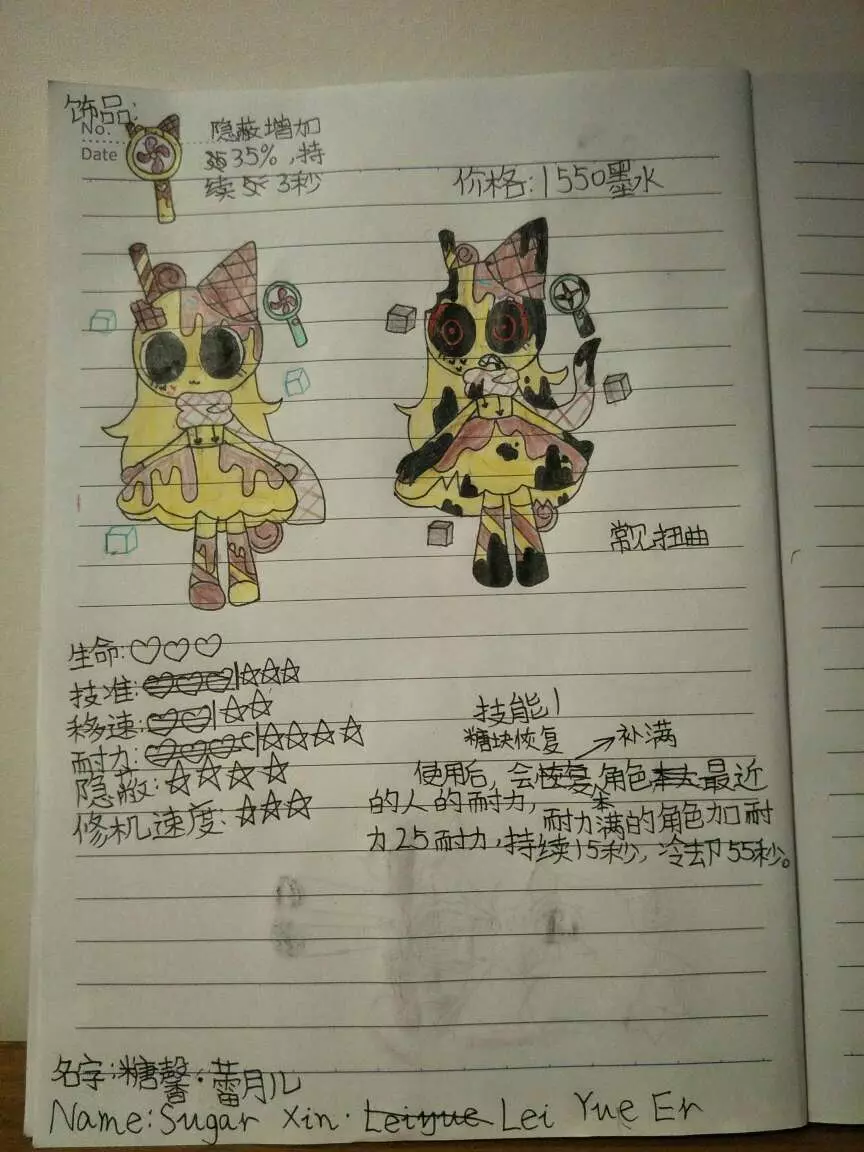 饰品:
No.
Date
隐蔽增加
35%，持
续 3秒
价格:1550墨水
常见扭曲
生命:♡♡♡
技准:☆☆☆
移速:☆☆
耐力:☆☆☆☆
隐蔽:☆☆☆☆
修机速度:☆☆☆
技能1
糖块恢复
补满
使用后，会恢复角色 最近
的人的耐力，本耐力满的角色加耐
力25耐力，持续15秒，冷却55秒。
名字:糖馨·蕾月儿
Name: Sugar Xin· Leiyue Lei Yue Er